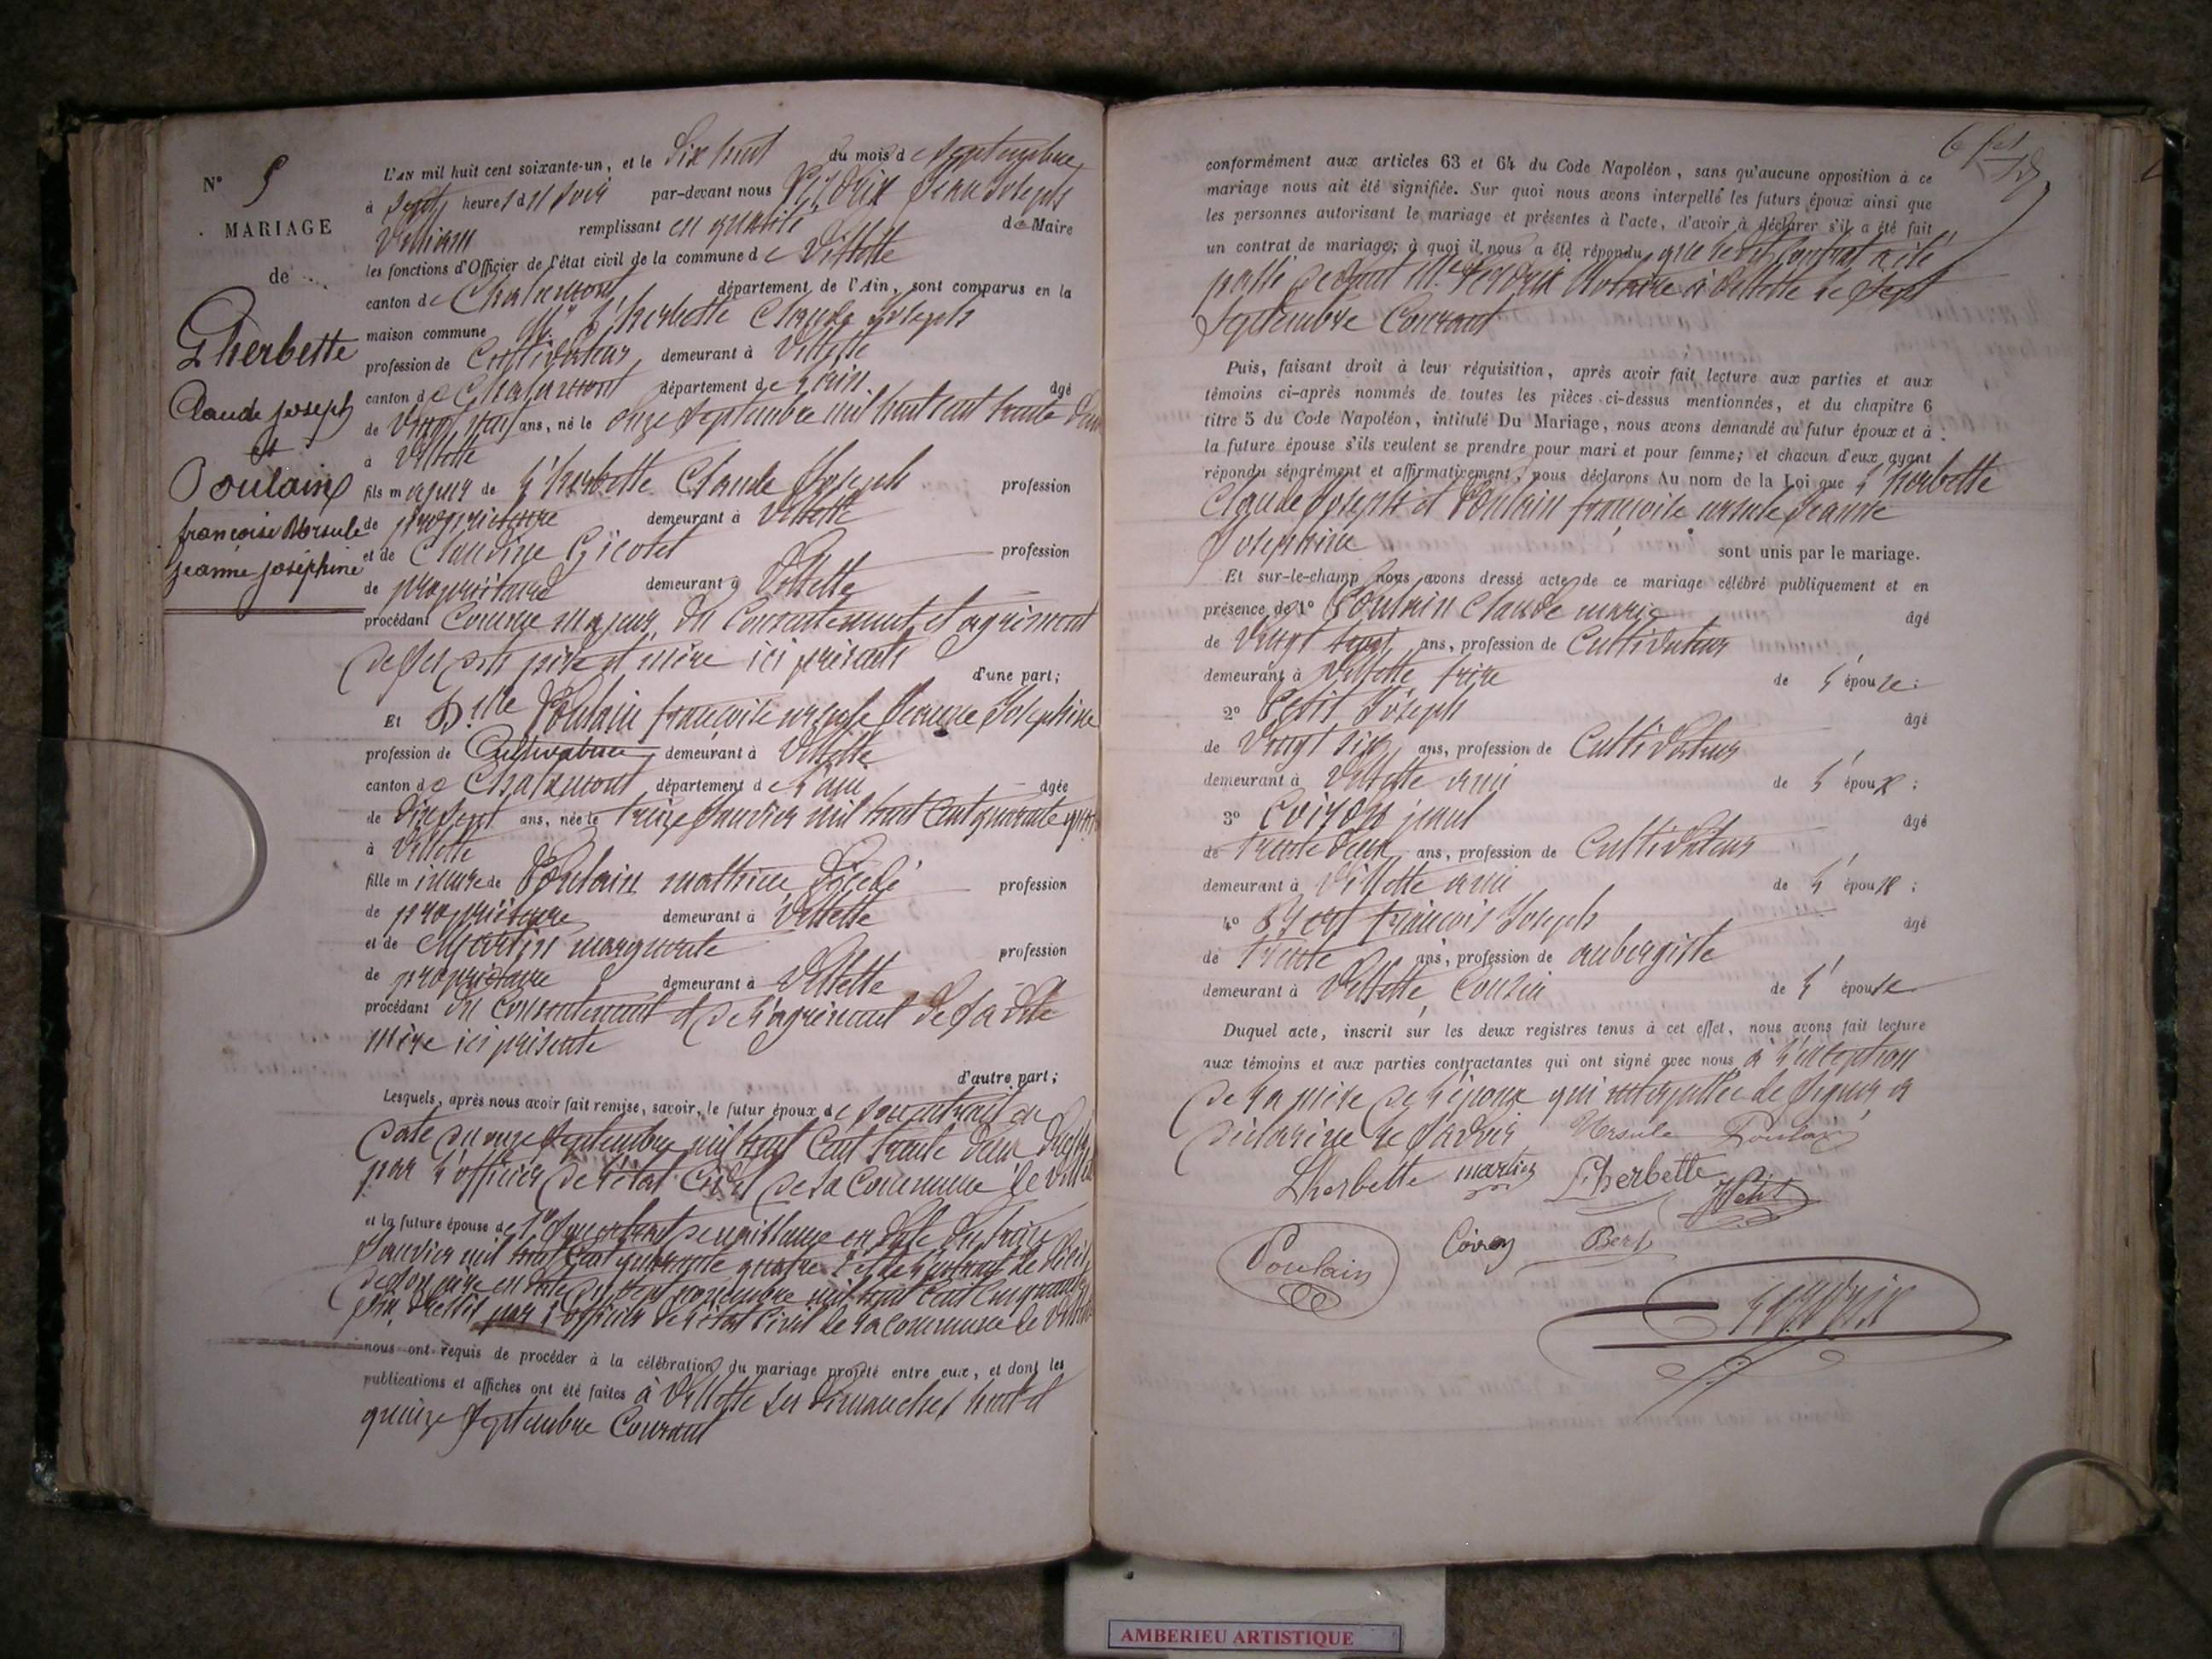 N° 5
MARIAGE
de
Lherbette
Claude joseph
et
Poulain
françoise Ursule
jeanne joséphine
L'AN mil huit cent soixante-un, et le dix huit du mois de septembre
à sept heures du soir par-devant nous Jean Joseph
remplissant en qualité de Maire
les fonctions d'Officier de l'état civil de la commune de Villette
canton de Chalamont département de l'Ain, sont comparus en la
maison commune Mr L'herbette Claude Joseph
profession de Cultivateur, demeurant à Villette
canton de Chalamont département de l'ain. âgé
de Vingt neuf ans, né le onze septembre mil huit cent trente deux
à Villette
fils majeur de L'herbette Claude Joseph profession
de propriétaire demeurant à Villette
et de Claudine profession
de propriétaire demeurant à Villette
procédant comme majeur, du consentement et agrément
de ses père et mère ici présents
d'une part;
Et Dlle Poulain françoise ursule Jeanne Josephine
profession de Cultivatrice demeurant à Villette
canton de Chalamont département de l'ain âgée
de dix sept ans, née le treize Janvier mil huit cent quarante quatre
à Villette
fille mineure de Poulain mathieu décédé profession
de propriétaire demeurant à Villette
et de Martin marguerite profession
de propriétaire demeurant à Villette
procédant du consentement et de l'agrément de sa dite
mère ici présente
d'autre part;
Lesquels, après nous avoir fait remise, savoir, le futur époux de son extrait en
date du onze septembre mil huit cent trente deux
par l'officier de l'état civil de la commune de Villette
et la future épouse de 1° son extrait de naissance en date du treize
Janvier mil huit cent quarante quatre 2° et de l'extrait de décès
de son père en date du sept novembre mil huit cent cinquante
par l'officier de l'état civil de la commune de Villette
nous ont requis de procéder à la célébration du mariage projeté entre eux, et dont les
publications et affiches ont été faites à Villette les dimanches huit et
quinze septembre courant
conformément aux articles 63 et 64 du Code Napoléon, sans qu'aucune opposition à ce
mariage nous ait été signifiée. Sur quoi nous avons interpellé les futurs époux ainsi que
les personnes autorisant le mariage et présentes à l'acte, d'avoir à déclarer s'il a été fait
un contrat de mariage; à quoi il nous a été répondu que le dit contrat a été
passé devant Me notaire à Villette le sept
septembre courant
Puis, faisant droit à leur réquisition, après avoir fait lecture aux parties et aux
témoins ci-après nommés de toutes les pièces ci-dessus mentionnées, et du chapitre 6
titre 5 du Code Napoléon, intitulé Du Mariage, nous avons demandé au futur époux et à
la future épouse s'ils veulent se prendre pour mari et pour femme; et chacun d'eux ayant
répondu séparément et affirmativement, nous déclarons Au nom de la Loi que L'herbette
Claude Joseph et Poulain françoise ursule Jeanne
Josephine sont unis par le mariage.
Et sur-le-champ nous avons dressé acte de ce mariage célébré publiquement et en
présence de 1° Poulain Claude marie âgé
de Vingt ans, profession de Cultivateur
demeurant à Villette frère de l'épouse;
2° Petit Joseph âgé
de Vingt six ans, profession de Cultivateur
demeurant à Villette ami de l'époux;
3° Coiron âgé
de trente deux ans, profession de Cultivateur
demeurant à Villette ami de l'époux;
4° françois Joseph âgé
de trente ans, profession de aubergiste
demeurant à Villette, Cousin de l'épouse
Duquel acte, inscrit sur les deux registres tenus à cet effet, nous avons fait lecture
aux témoins et aux parties contractantes qui ont signé avec nous à l'exception
de la mère de l'époux qui interpellée de signer a
déclaré ne savoir Ursule Poulain
Lherbette martin Lherbette JPetit
Poulain Coiron Bert
AMBERIEU ARTISTIQUE